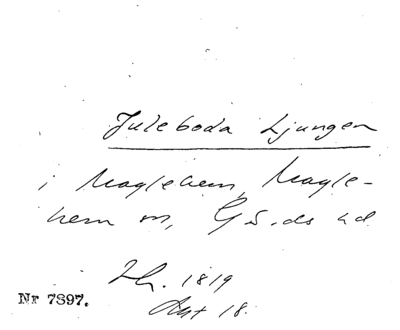 Juleboda Ljungen
i Maglehem, Magle-
hem sn, Gärds hd
Lh. 1819
Akt 18.
Nr 7897.